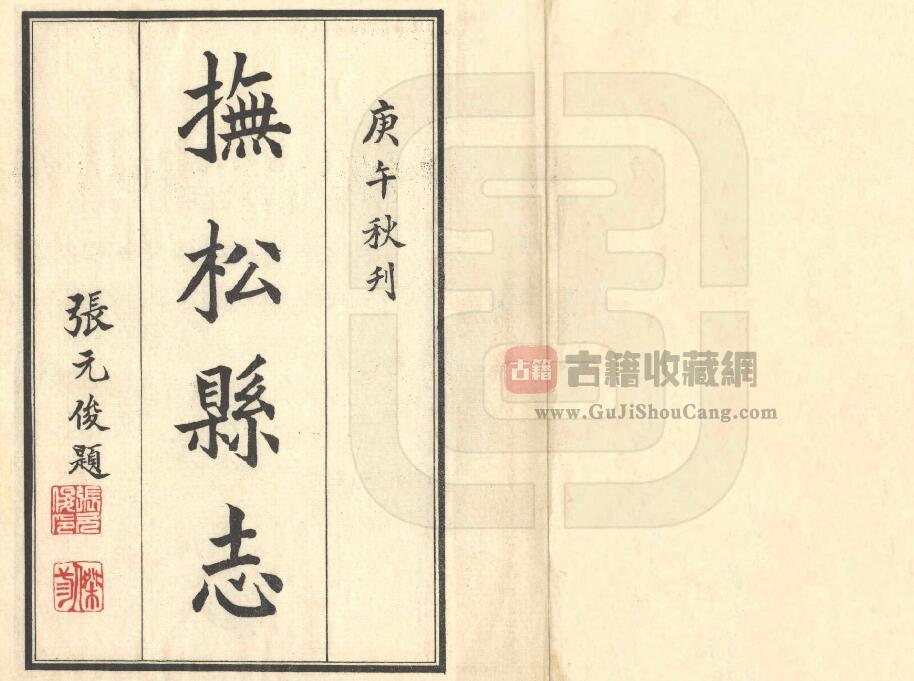 庚午秋刋
撫松縣志
張元俊題
古籍
古籍收藏網
www.GuJiShouCang.com